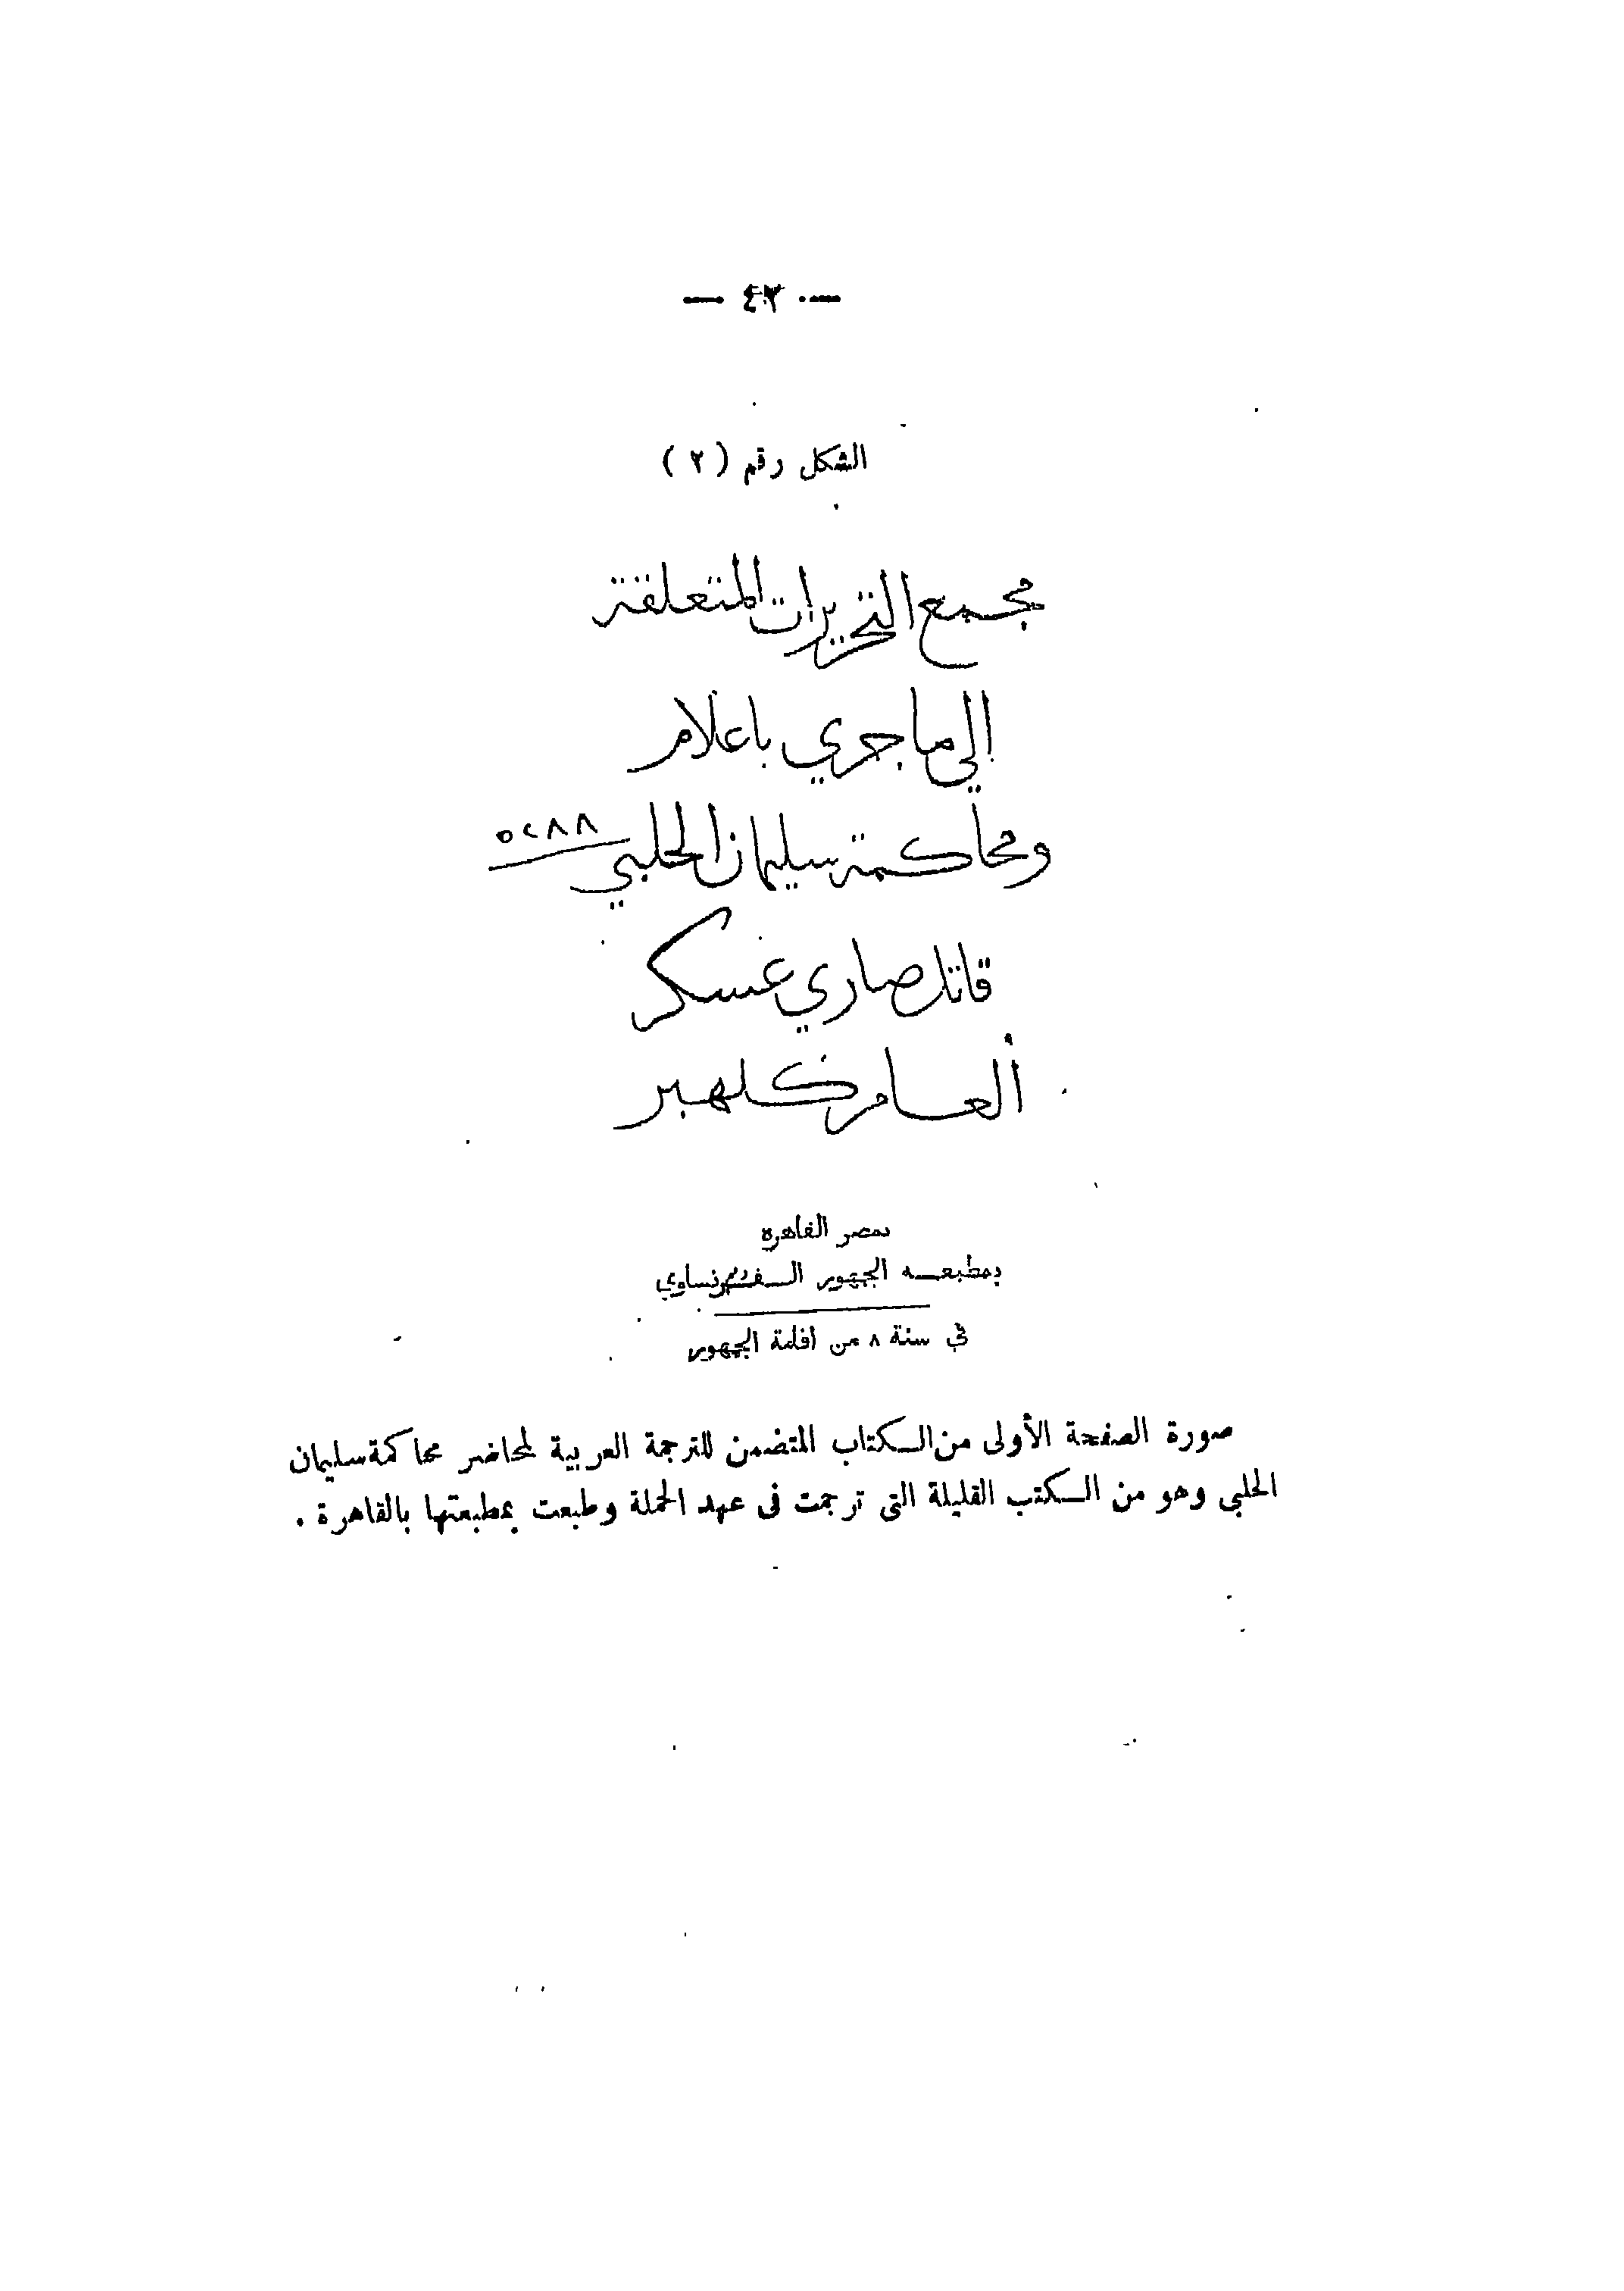 — ٤٢ —
الشكل رقم ( ٢ )
مجمع التحريرات المتعلقة
الي ما جري باعلام
ومحاكمة سليمان الحلبي
٥٢٨٨
قاتل صاري عسكر
العام كلهبر
بمصر القاهرة
بمطبعه الجهور الفرنساوي
في سنة ٨ من اقامة الجهور
صورة الصفحة الأولى من الكتاب المتضمن للترجمة العربية لمحاضر محاكمة سليمان
الحلبى وهو من الكتب القليلة التى ترجمت فى عهد الحملة وطبعت بمطبعتها بالقاهرة .